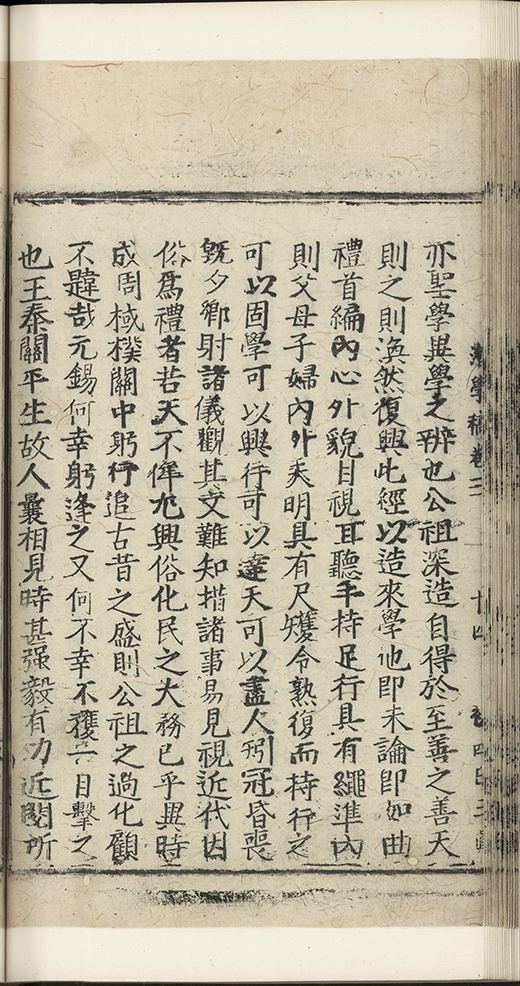 亦聖學異學之辨也公祖深造自得於至善之善天
則之則渙然復興此經以造來學也即未論即如曲
禮首編內心外貌目視耳聽手持足行具有繩準內
則父母子婦內外夾明具有尺矱令熟復而持行之
可以固學可以興行可以達天可以盡人矧冠昏喪
旣夕鄉射諸儀觀其文難知措諸事易見視近代因
俗爲禮者若天不侔旭興俗化民之大務已乎異時
成周棫樸關中躬行追古昔之盛則公祖之過化顧
不韙哉元錫何幸躬逢之又何不幸不獲一目擊之
也王秦關平生故人曩相見時甚强毅有力近閱所
學稿卷三
十四